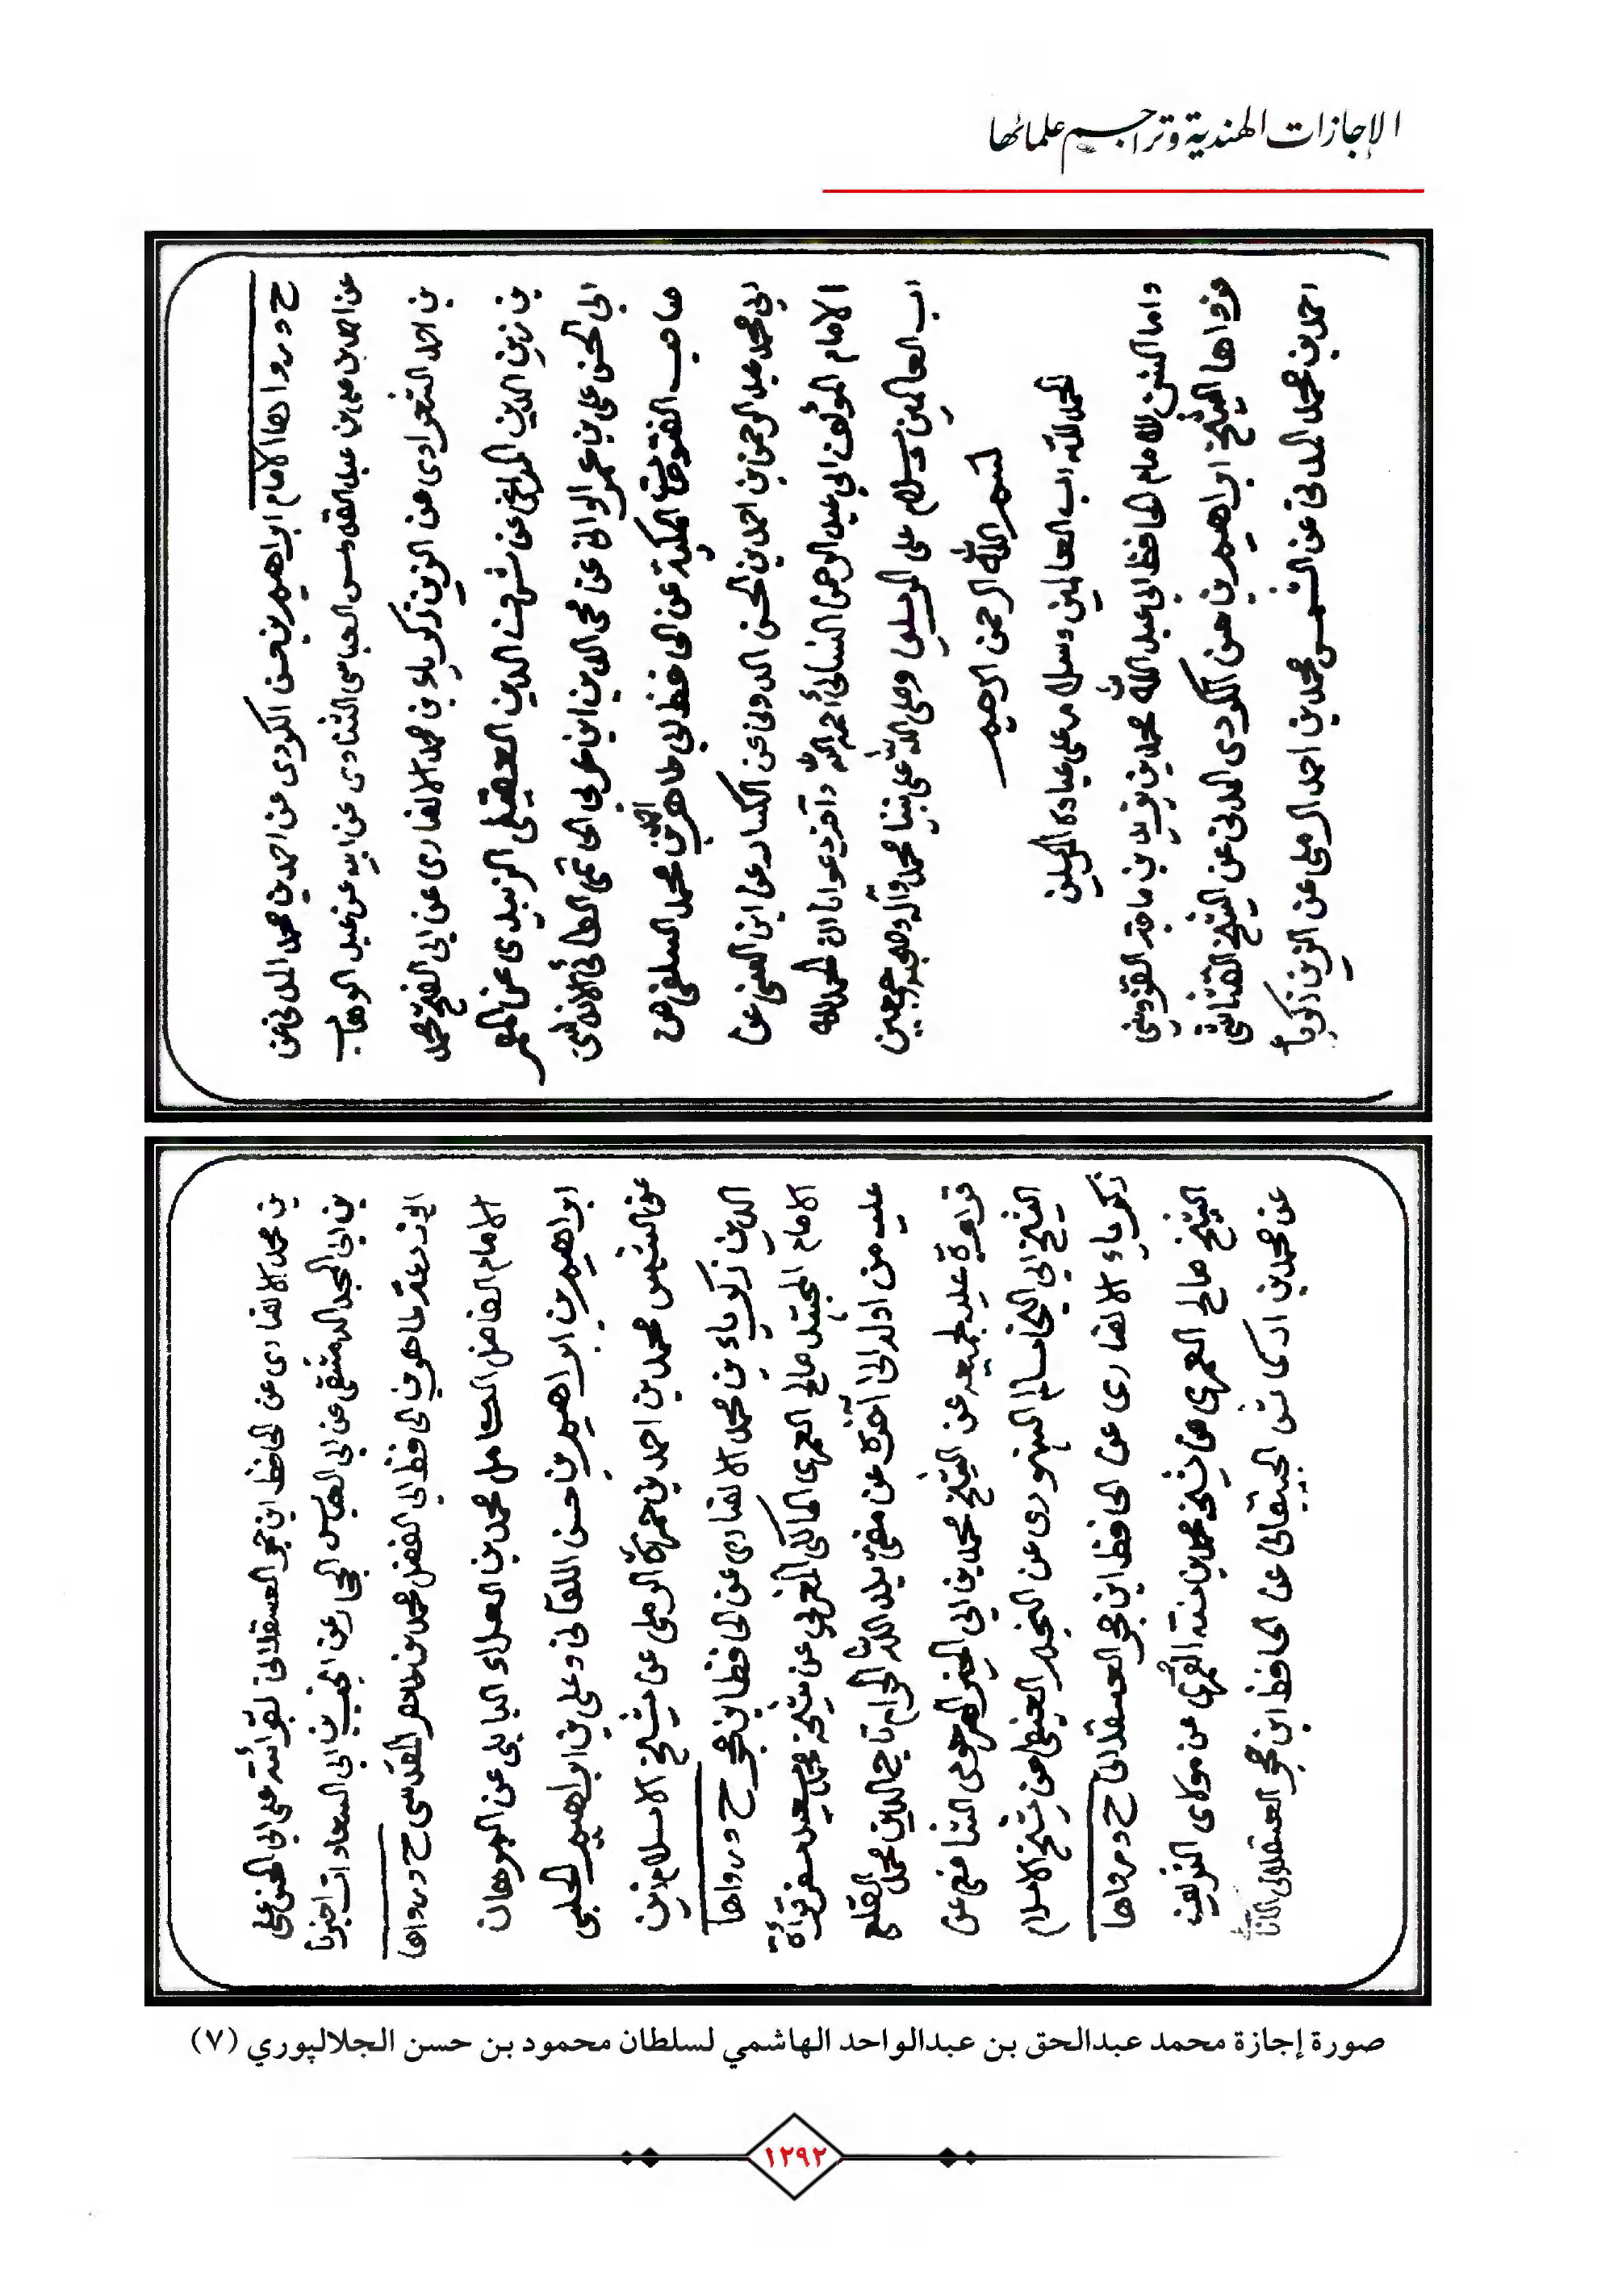 الإجازات الهندية وتراجم علمائها
ح ورواها الامام ابراهيم بن حسن الكردي عن احمد بن محمد المدني عن
عن احمد بن علي بن عبد القدوس العباسي الشناوي عن ابيه عن عبد الوهاب
بن احمد الشعراوي عن الزين زكريا بن محمد الانصاري عن ابي الفتح محمد
بن زين الدين المراغي عن شرف الدين العقيلي الزبيدي عن المعمر
ابي الحسن علي بن عمر الواني عن محي الدين ابن عربي الحاتمي الطائي الاندلسي
صاحب الفتوحات المكية عن الحافظ ابي طاهر احمد بن محمد السلفي عن
ابي محمد عبد الرحمن بن احمد بن الحسن الدوني عن الكسار عن ابن السني عن
الامام المؤلف ابي عبد الرحمن النسائي رحمه الله وآخر دعوانا ان الحمد لله
رب العالمين وسلام على المرسلين وصلى الله على نبينا محمد وآله وصحبه اجمعين
بسم الله الرحمن الرحيم
الحمد لله رب العالمين وسلام على عباده المرسلين
واما السنن للامام الحافظ ابي عبد الله محمد بن يزيد بن ماجة القزويني
فرواها الشيخ ابراهيم بن حسن الكردي المدني عن الشيخ القشاشي
احمد بن محمد المدني عن الشمس محمد بن احمد الرملي عن الزين زكريا
بن محمد الانصاري عن الحافظ ابن حجر العسقلاني بقرائته على ابي الحسن علي
بن ابي المجد الدمشقي عن ابي العباس الحجار عن انجب بن ابي السعادات اخبرنا
ابو زرعة طاهر بن الحافظ ابي الفضل محمد بن طاهر المقدسي ح ورواها
الامام الفاضل الكامل محمد بن العلاء البابلي عن البرهان
ابراهيم بن ابراهيم بن حسن اللقاني وعلي بن ابراهيم الحلبي
عن الشمس محمد بن احمد بن حمزة الرملي عن شيخ الاسلام زين
الدين زكرياء بن محمد الانصاري عن الحافظ ابن حجر ح ورواها
الامام المجتهد صالح العمري المالكي المغربي عن شيخه محمد سعيد سفر قرائة
عليه من اوله الى آخره عن مفتي بلد الله الحرام تاج الدين محمد القلعي
قراءة عليه لجميعه عن الشيخ محمد بن ابي الخير المرحومي الشافعي عن
الشيخ ابي النجا سالم السنهوري عن النجم الغيطي عن شيخ الاسلام
زكرياء الانصاري عن الحافظ ابن حجر العسقلاني ح ورواها
الشيخ صالح العمري عن شيخه محمد بن سنه العمري عن مولاي الشريف
عن محمد بن اركماش الحنفي عن الحافظ ابن حجر العسقلاني
صورة إجازة محمد عبدالحق بن عبدالواحد الهاشمي لسلطان محمود بن حسن الجلالپوري (٧)
١٢٩٢